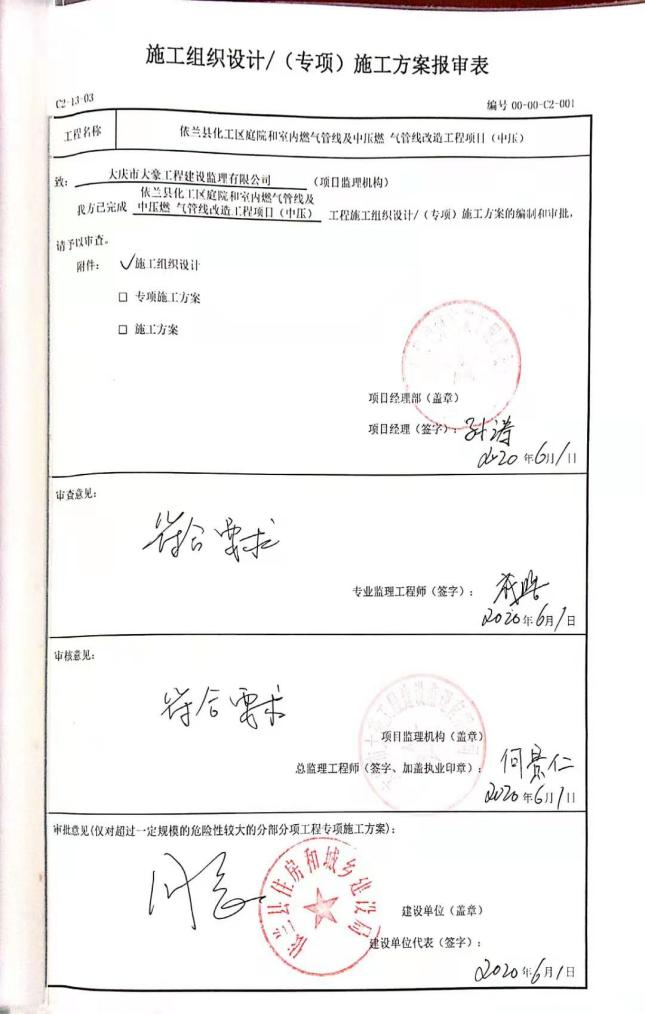 施工组织设计/（专项）施工方案报审表
C2-13-03
编号 00-00-C2-001
工程名称
依兰县化工区庭院和室内燃气管线及中压燃 气管线改造工程项目（中压）
致： 大庆市大豪工程建设监理有限公司 （项目监理机构）
我方已完成 依兰县化工区庭院和室内燃气管线及
中压燃 气管线改造工程项目（中压） 工程施工组织设计/（专项）施工方案的编制和审批，
请予以审查。
附件： ✓施工组织设计
□ 专项施工方案
□ 施工方案
项目经理部（盖章）
项目经理（签字）：
2020年6月1日
审查意见：
符合要求
专业监理工程师（签字）：
2020年6月1日
审核意见：
符合要求
项目监理机构（盖章）
总监理工程师（签字、加盖执业印章）： 何景仁
2020年6月1日
审批意见(仅对超过一定规模的危险性较大的分部分项工程专项施工方案)：
同意
依兰县住房和城乡建设局
建设单位（盖章）
建设单位代表（签字）：
2020年6月1日